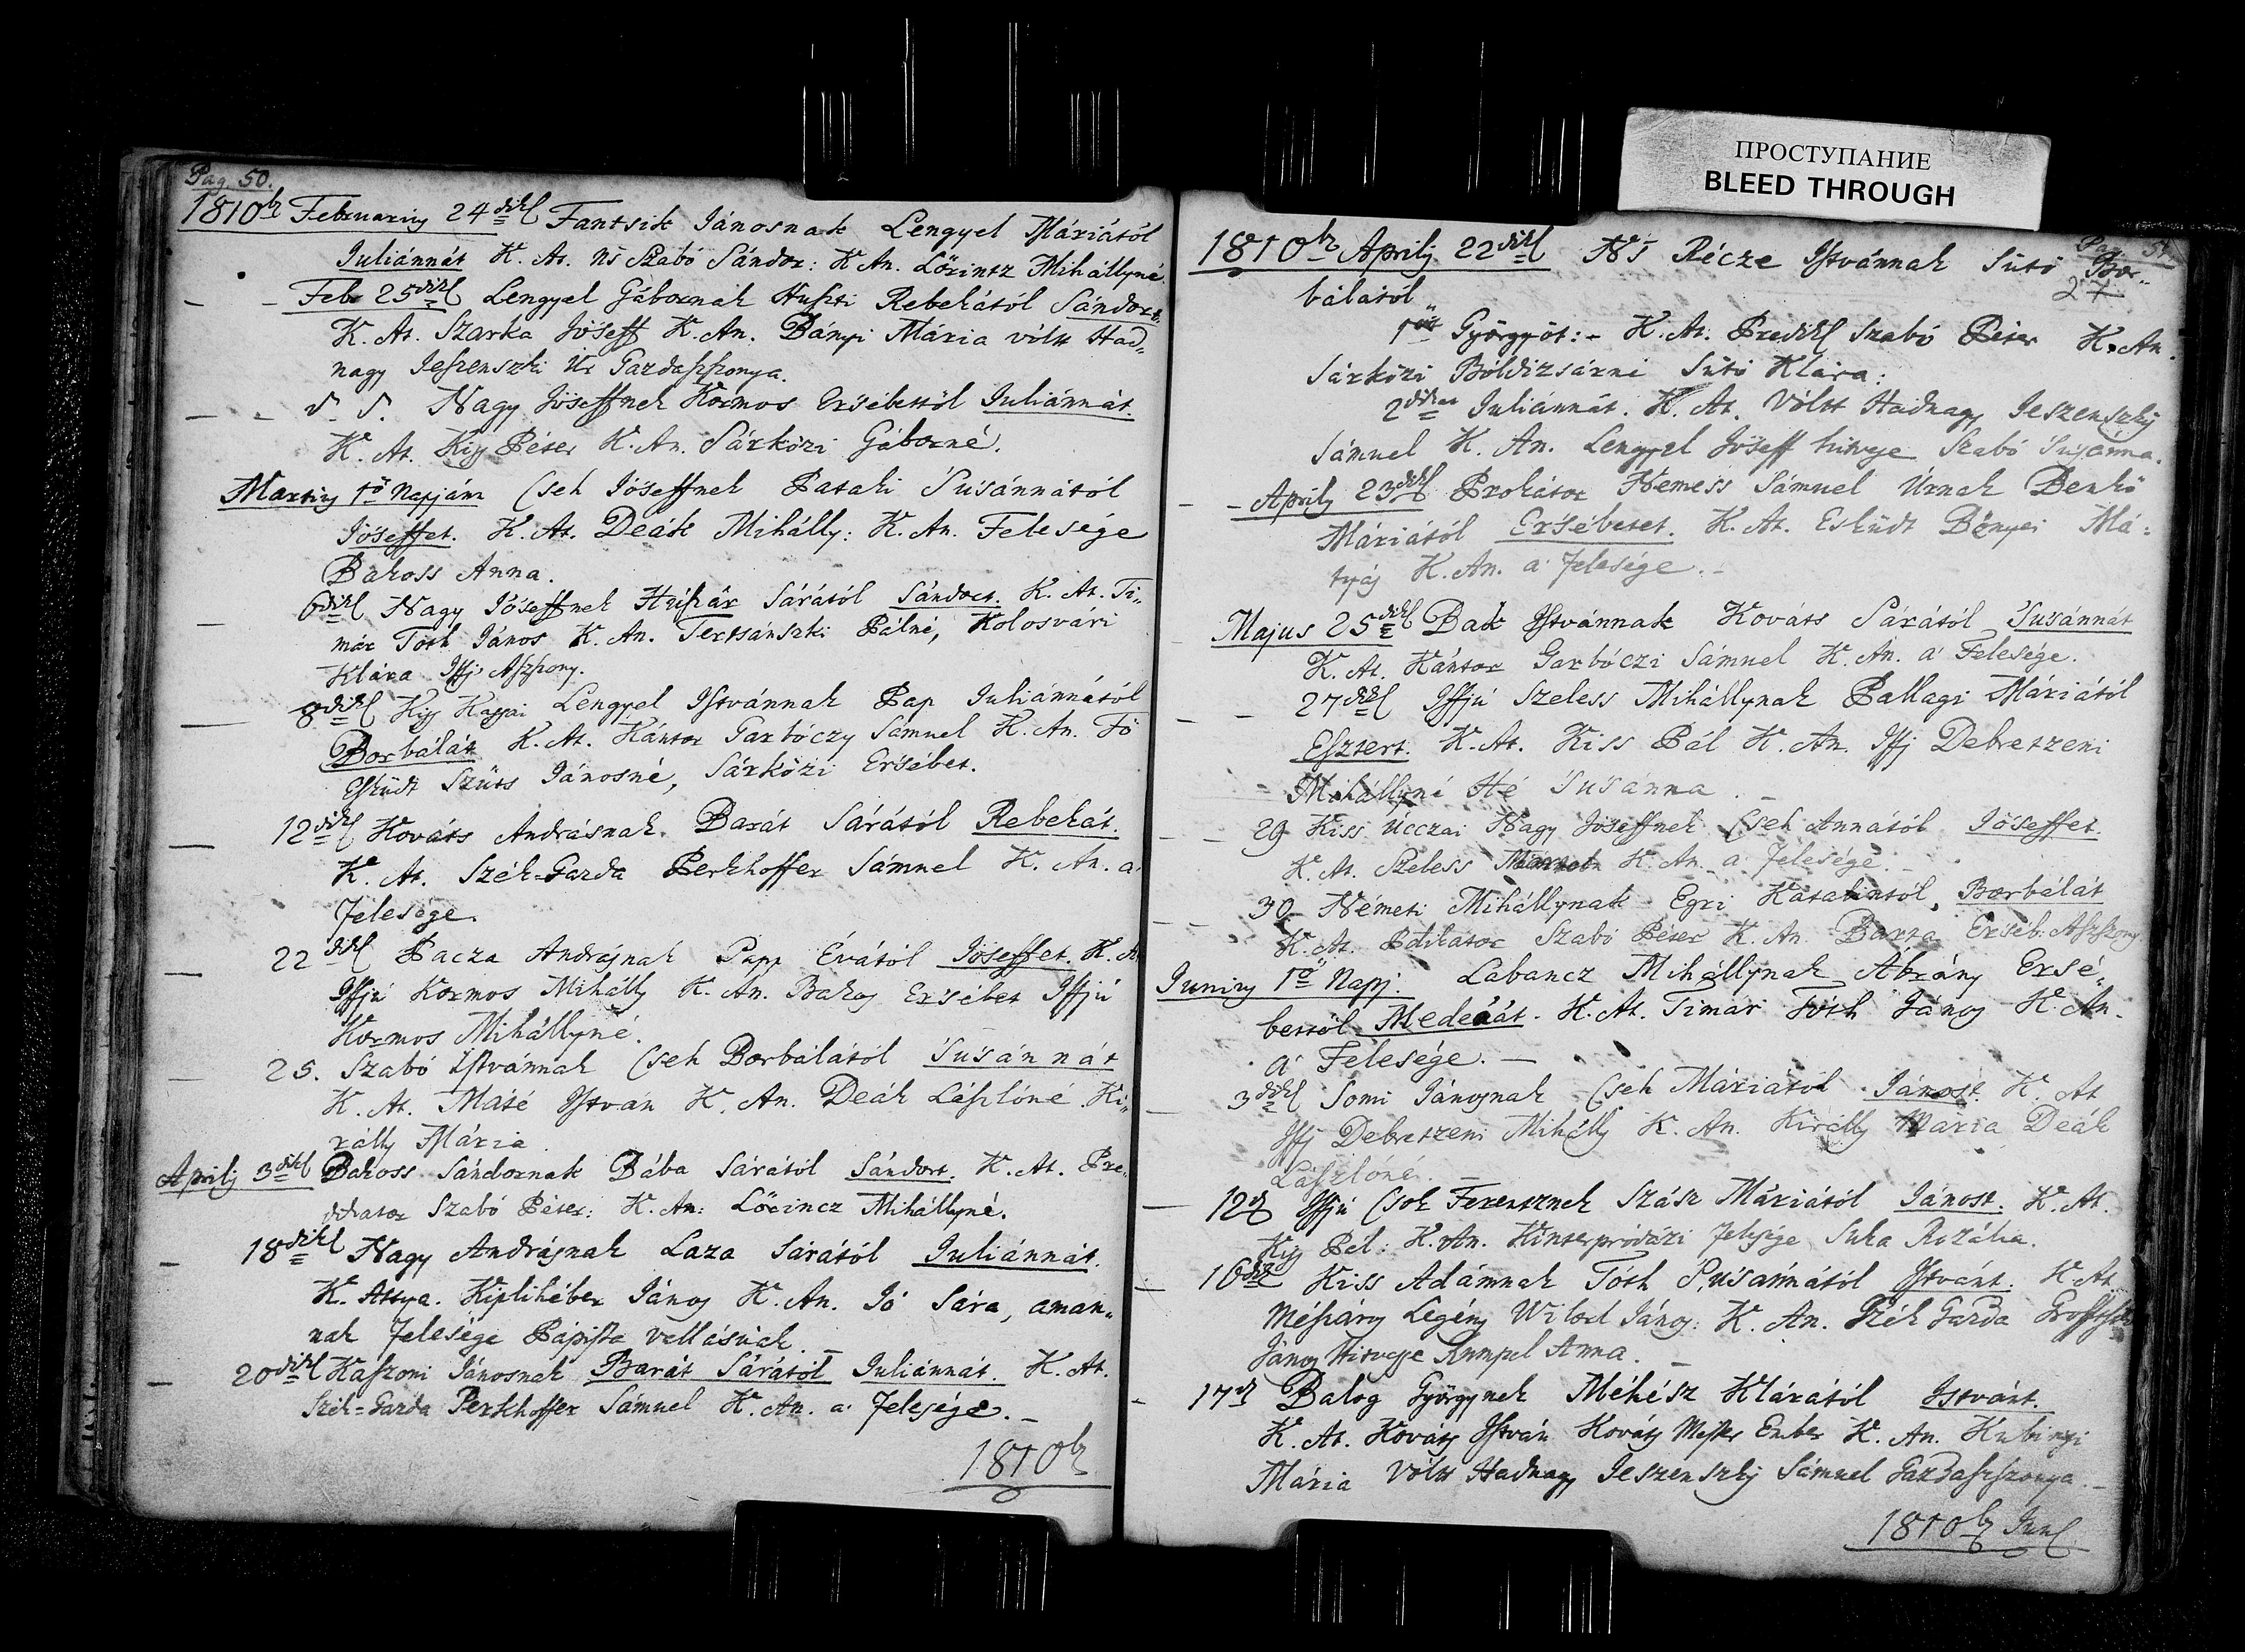 ПРОСТУПАНИЕ
BLEED THROUGH
Pag. 50.
1810b Februariy 24dik Fantsik Jánosnak Lengyel Máriától
Juliánnát K. At. Ns Szabó Sándor: K An. Lörintz Mihállyné
Febr 25dik Lengyel Gábornak Huszti Rebekától Sándort.
K. At. Szarka Jóseff K. An. Bányi Mária vóltt Had„
nagy Jeszenszki Ur Gazdaszszonya.
Nagy Jóseffnek Kormos Ersébettöl Juliánnát.
K. At. Kiss Péter K. An. Sárközi Gáborné.
Martiy 1ö Napján Cseh Jóseffnek Pataki Susánnától
Jóseffet. K. At. Deák Mihálly: K. An. Felesége
Bakoss Anna.
6dik Nagy Jóseffnek Huszár Sárától Sándort. K. At. Ti„
már Tóth János K. An. Tersánszki Pálné, Kolosvári
Klára Iffj Aszszony.
8dik Kiss Kassai Lengyel Istvánnak Pap Juliánnától
Borbálát K. At. Kántor Garbóczy Sámuel K. An. Fö
Esküdt Szüts Jánosné, Sárközi Ersébet.
12dik Kováts Andrásnak Barát Sárától Rebekát.
K. At. Szék-Garda Perkhoffer Sámuel K. An. a
felesége.
22dik Pacza Andrásnak Papp Évától Jóseffet. K. A
Iffjú Kormos Mihálly K. An. Bakos Ersébet Iffjú
Kormos Mihállyné.
25. Szabó Istvánnak Cseh Borbálától Susánnát
K. At. Máté István K. An. Deák Lászlóné Ki„
rálly Mária
Aprilj 3dik Bakoss Sándornak Bába Sárától Sándort. K. At. Pre„
dikator Szabó Péter: K. An: Lörincz Mihállyné.
18dik Nagy Andrásnak Laza Sárától Juliánnát.
K. Attya. Kiplihéber János K. An. Jó Sára, aman„
nak felesége Pápista vallásúak.
20dik Kaszoni Jánosnak Barát Sárától Juliánnát. K. At.
Szék=Garda Perkhoffer Sámuel K. An. a felesége.
1810b
Pag. 51.
1810b Aprilj 22dik Ns Récze Istvánnak Sütö Bor„
bálától
1ör Györgyöt: - K. At. Predik Szabó Péter K. An.
Sárközi Bóldizsárni Sütö Klára:
2dikat Juliánnát. K. At. Vóltt Hadnagy Jeszenszky
Sámuel K. An. Lengyel Jóseff hitvese Szabó Susánna.
Aprilj 23dik Prokátor Nemess Sámuel Úrnak Benkö
Máriától Ersébetet. K. At. Esküdt Bönyei Má:
tyás K. An. a felesége.
Majus 25dik Bak Istvánnak Kováts Sárától Susánnát
K. At. Kántor Garbóczi Sámuel K. An. a Felesége.
27dik Iffjú Szeless Mihállynak Pallagi Máriától
Esztert. K. At. Kiss Pál K. An. Iffj Debretzeni
Mihállyné Hé Susánna.
29 Kiss Ucczai Nagy Jóseffnek Cseh Annától Jóseffet.
K. At. Szeless K. An. a felesége.
30 Németi Mihállynak Egri Katalintól, Borbálát
K. At. Szabó Péter K. An. Barta Erséb. Aszszony
Juniy 1ö Napj. Labancz Mihállynak Abrány Ersé„
bettöl Medeát. K. At. Timár Tóth János K. An.
a Felesége.
3dik Somi Jánosnak Cseh Máriától Jánost. K. At
Iffj Debretzeni Mihálly K. An. Királly Mária Deák
Lászlóné.
12d Iffjú Csok Ferentznek Szász Máriától Jánost. K. At.
Kiss Pál: K. An. felesége Suka Rozália.
16dik Kiss Adámnak Tóth Susánnától Istvánt. K. At
Mészáros Legény János: K. An. Szék Garda
János Hitvesse Rumpel Anna.
17d Balog Györgynek Méhész Klárától Istvánt.
K. At. Kováts István Kováts Mester Ember K. An. Kubinyi
Mária Vóltt Hadnagy Jeszenszky Sámuel Gazdaszszonya.
1810b Jun